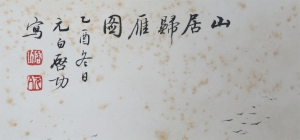 山居歸雁圖
乙酉冬日
元白啓功
寫